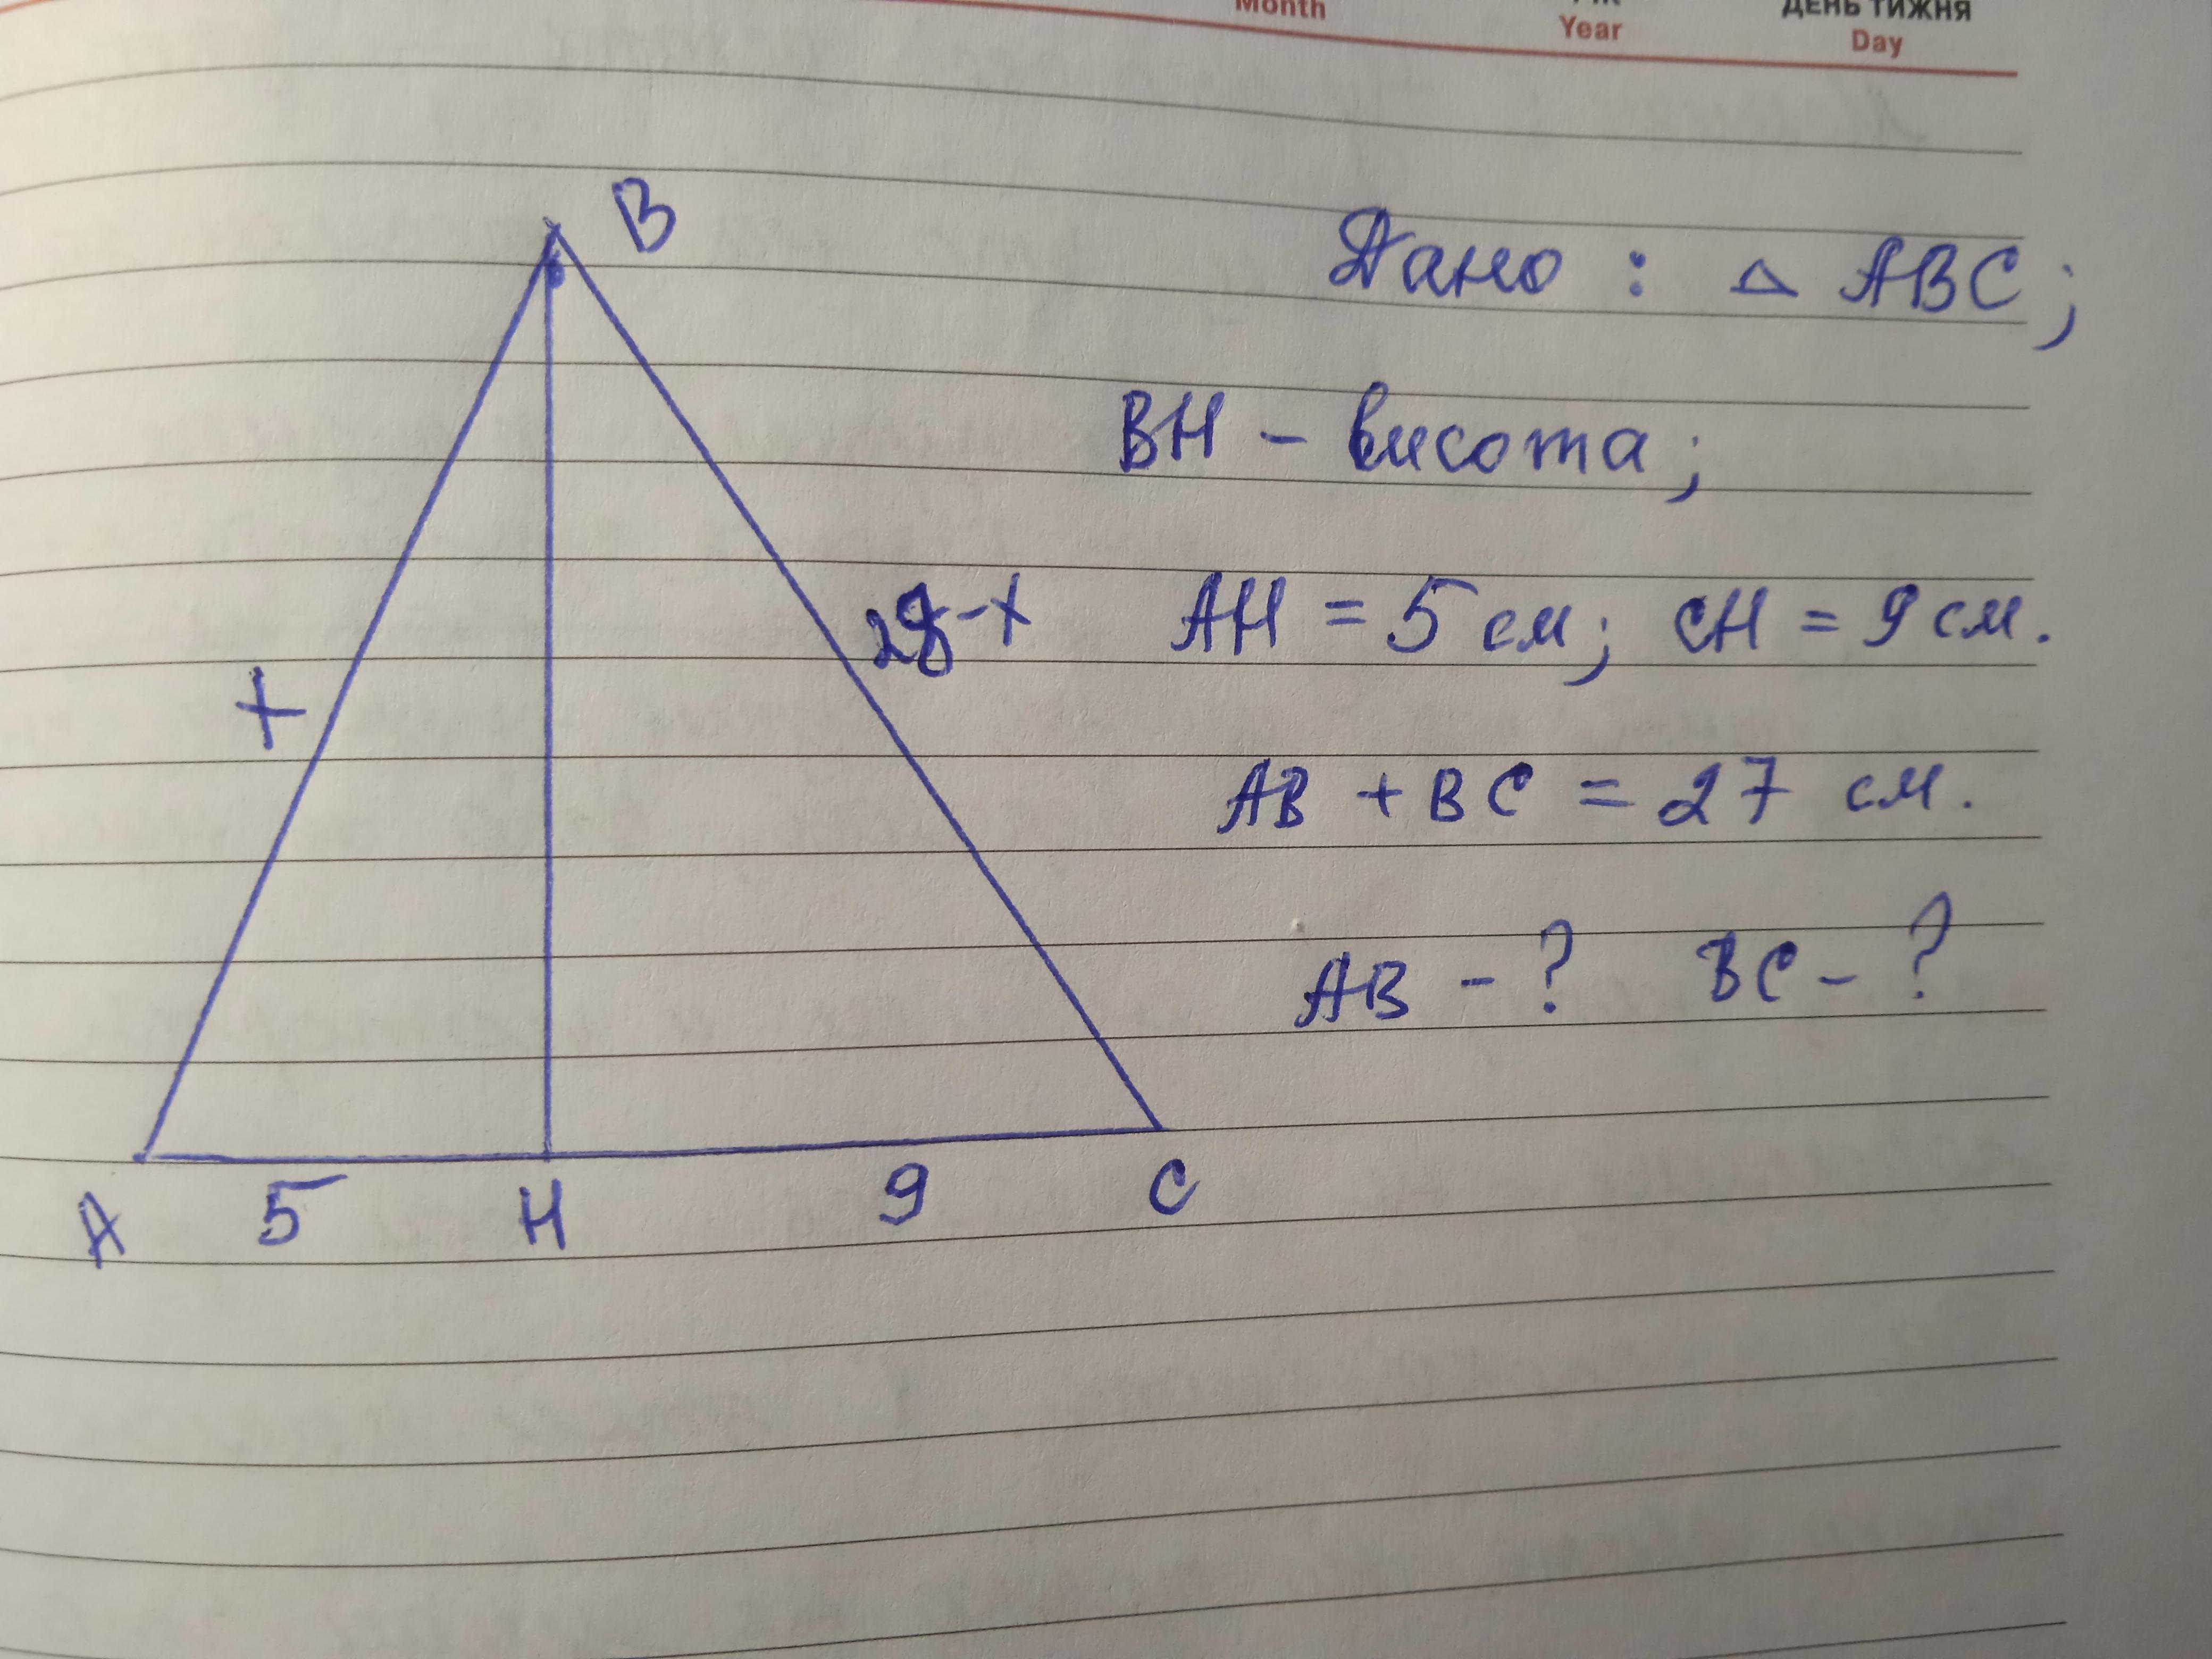 Month Year ДЕНЬ ТИЖНЯ
Day
B
Дано : △ ABC;
BH - висота;
x
28-x
AH = 5 см; CH = 9 см.
AB + BC = 27 см.
AB - ? BC - ?
A 5 H 9 C